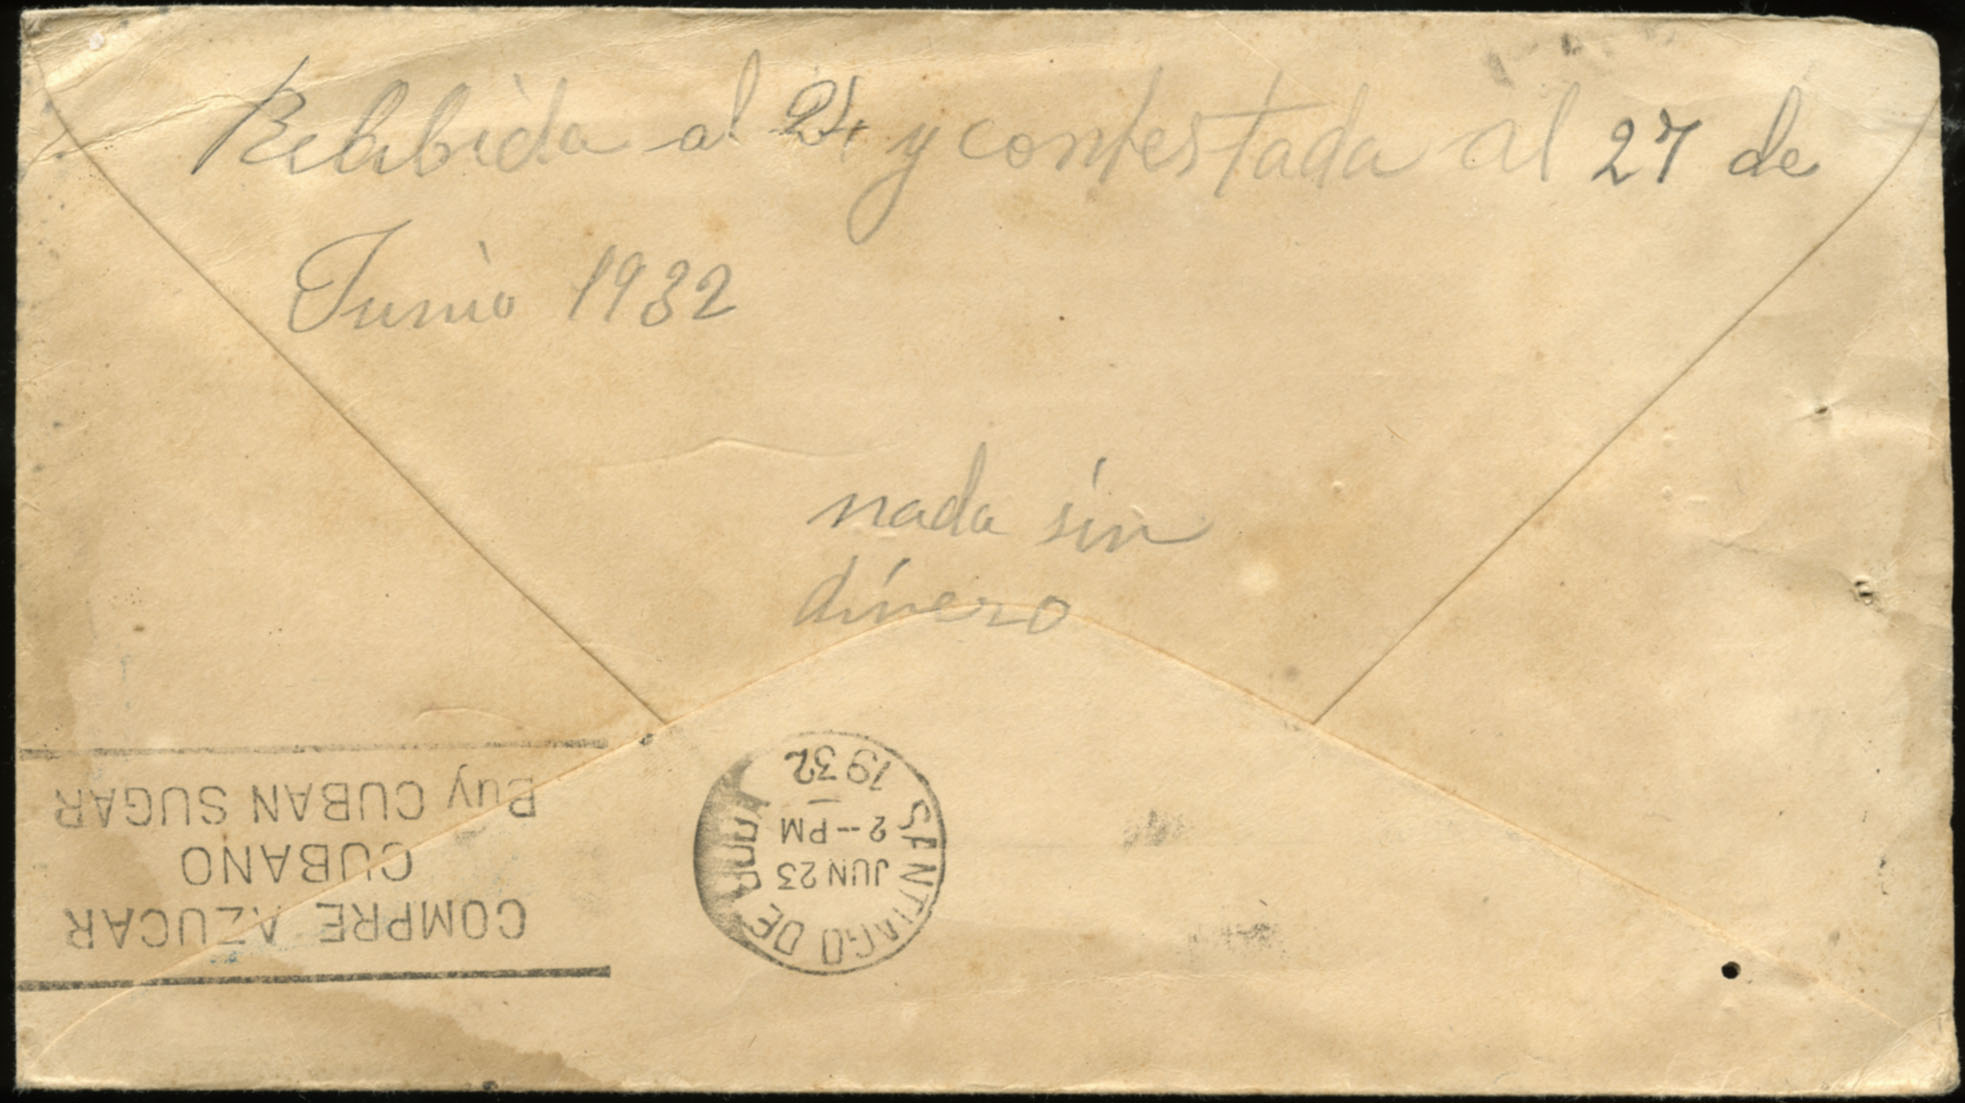 Recibida al 24 y contestada al 27 de
Junio 1932
nada sin
dinero
COMPRE AZUCAR
CUBANO
Buy CUBAN SUGAR
SANTIAGO DE CUBA
JUN 23
2--PM
1932